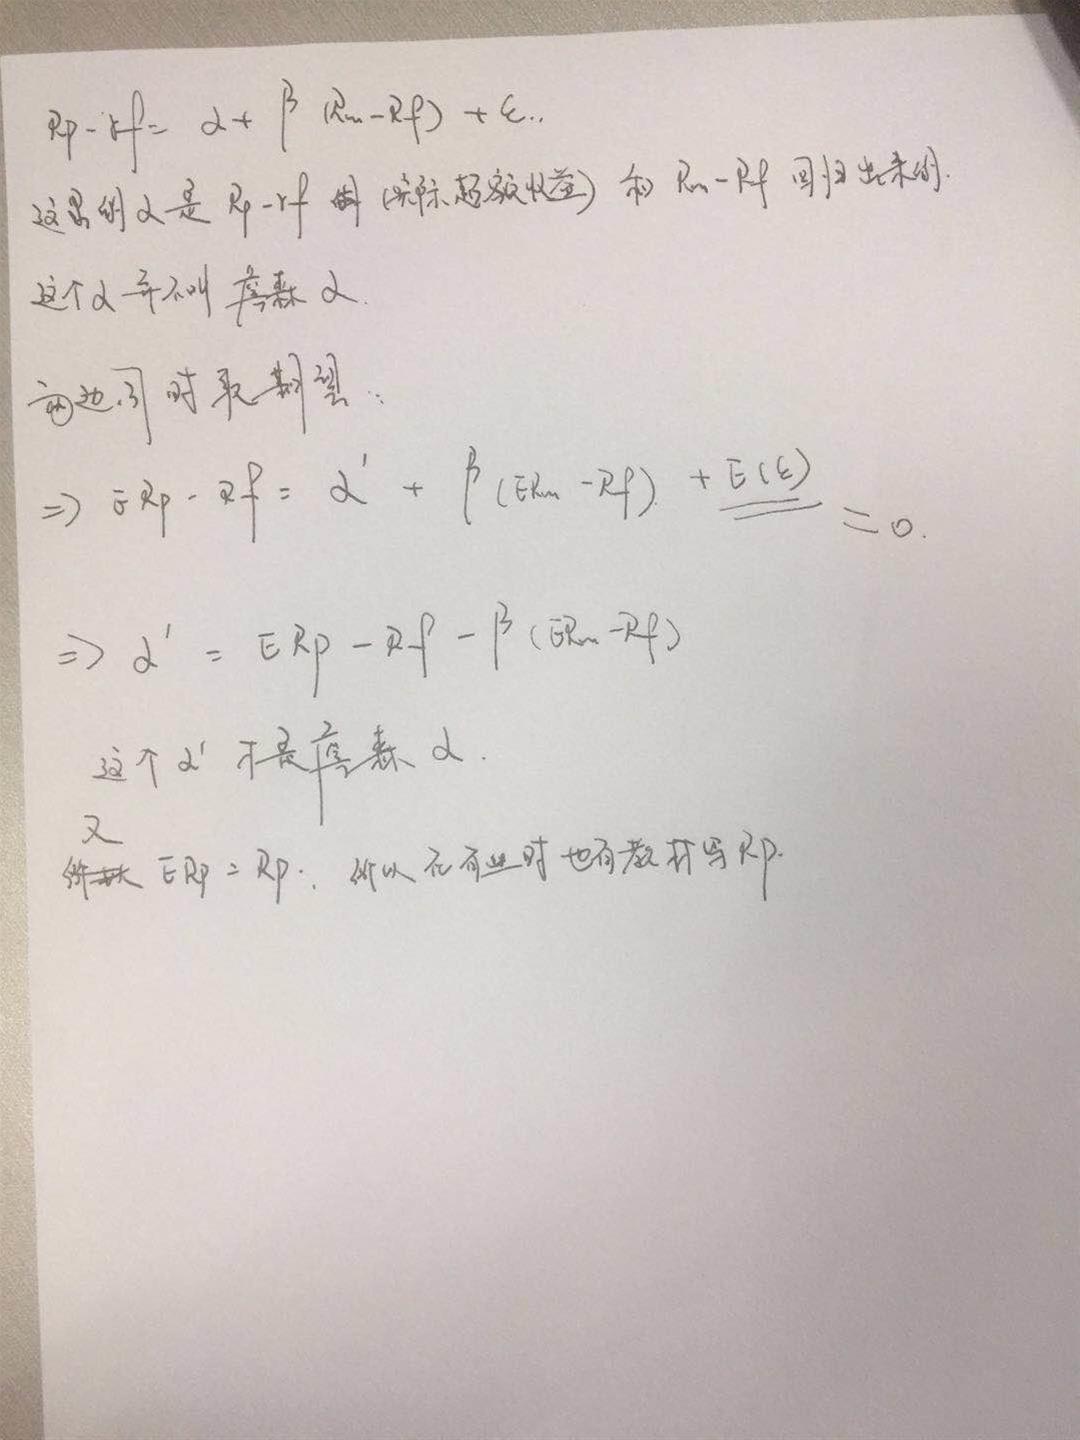 Rp-rf= α+ β (Rm-Rf) + ε..
这里的α是 Rp-rf (实际超额收益) 和 Rm-Rf 回归出来的.
这个α并不叫詹森α.
两边同时取期望:
=> ERp - Rf = α' + β(ERm-Rf) + E(ε) =0.
=> α' = ERp-Rf-β(ERm-Rf)
这个α' 不是詹森α.
又
ERp=Rp. 所以在有些时也有教材写Rp.